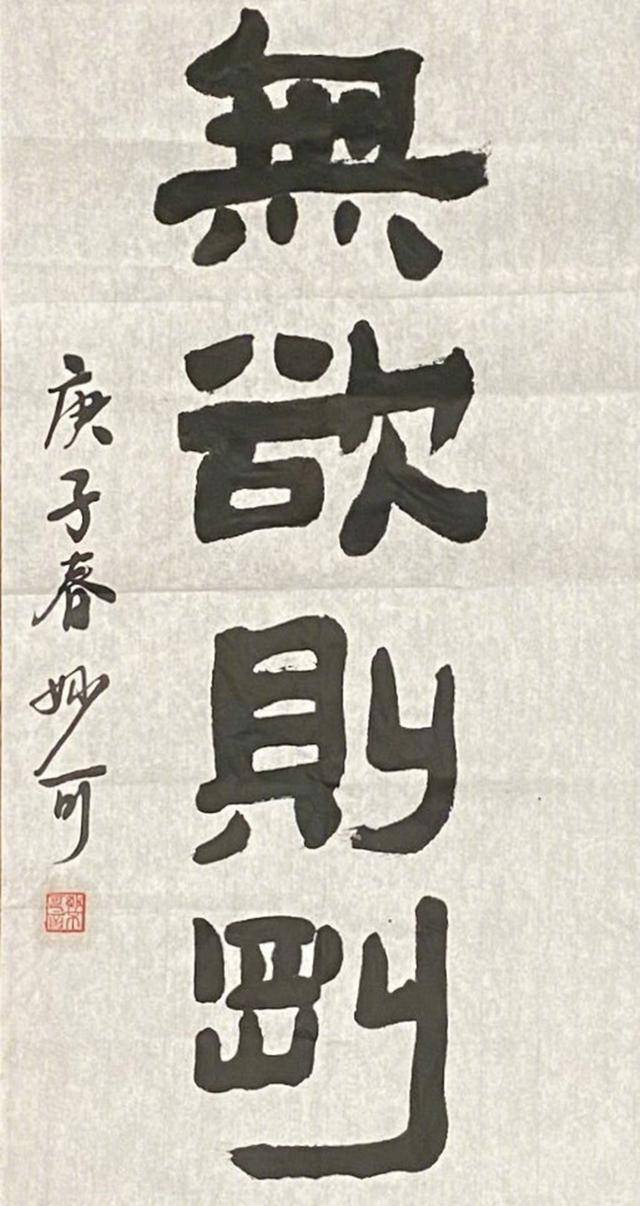 無欲則剛
庚子春妙可